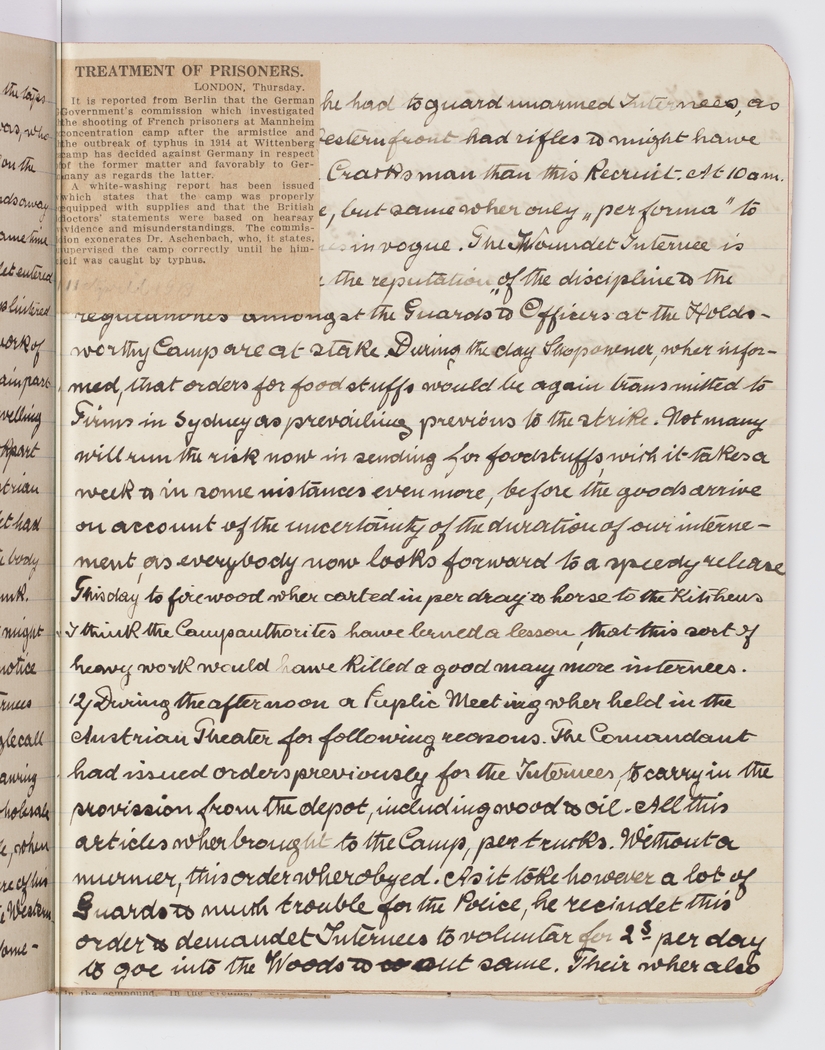 TREATMENT OF PRISONERS.
LONDON, Thursday.
It is reported from Berlin that the German
Government's commission which investigated
the shooting of French prisoners at Mannheim
concentration camp after the armistice and
the outbreak of typhus in 1914 at Wittenberg
camp has decided against Germany in respect
of the former matter and favorably to Ger-
many as regards the latter.
A white-washing report has been issued
which states that the camp was properly
equipped with supplies and that the British
doctors' statements were based on hearsay
evidence and misunderstandings. The commis-
sion exonerates Dr. Aschenbach, who, it states,
supervised the camp correctly until he him-
self was caught by typhus.
he had to guard unarmed Internees, as
estern front had rifles & might hawe
Cracksman than this Recruit. At 10 am.
e, but same wher only „per forma" to
in vogue. The Woundet Internee is
the reputation of the discipline & the
regulationes amongst the Guards" & Officers at the Holds-
worthy Camp are at stake. During the day Shopowner, wher infor-
med, that orders for foodstuffs would be again transmitted to
Firms in Sydney as prevailing previous to the strike. Not many
will run the risk now in sending for foodstuffs, wich it takes a
week & in some nistances even more, before the goods arrive
on account of the uncertainity of the duration of our interne-
ment, as everybody now looks forward to a speedy release
This day to firewood wher carted in per dray & horse to the Kitchens
I think the Camp authorites hawe lerned a lesson, that this sort of
heavy work would hawe killed a good many more internees.
12) During the afternoon a Puplic Meeting wher held in the
Austrian Theater for following reasons. The Comandant
had issued orders previously for the Internees, to carry in the
provission from the depot, including wood & oil. All this
articles wher brought to the Camp, per trucks. Without a
murmer, this order wher obyed. As it toke however a lot of
Guards & much trouble for the Police, he recindet this
order & demandet Internees to voluntar for 2s per day
to goe into the Woods to cut same. Their wher also
the taps
was, who
on the
ame time
let entered
work of
velling
Apart
trian
et had
body
might
notice
rnees
gle call
awing
holesale
e, when
re of his
Western
ome-